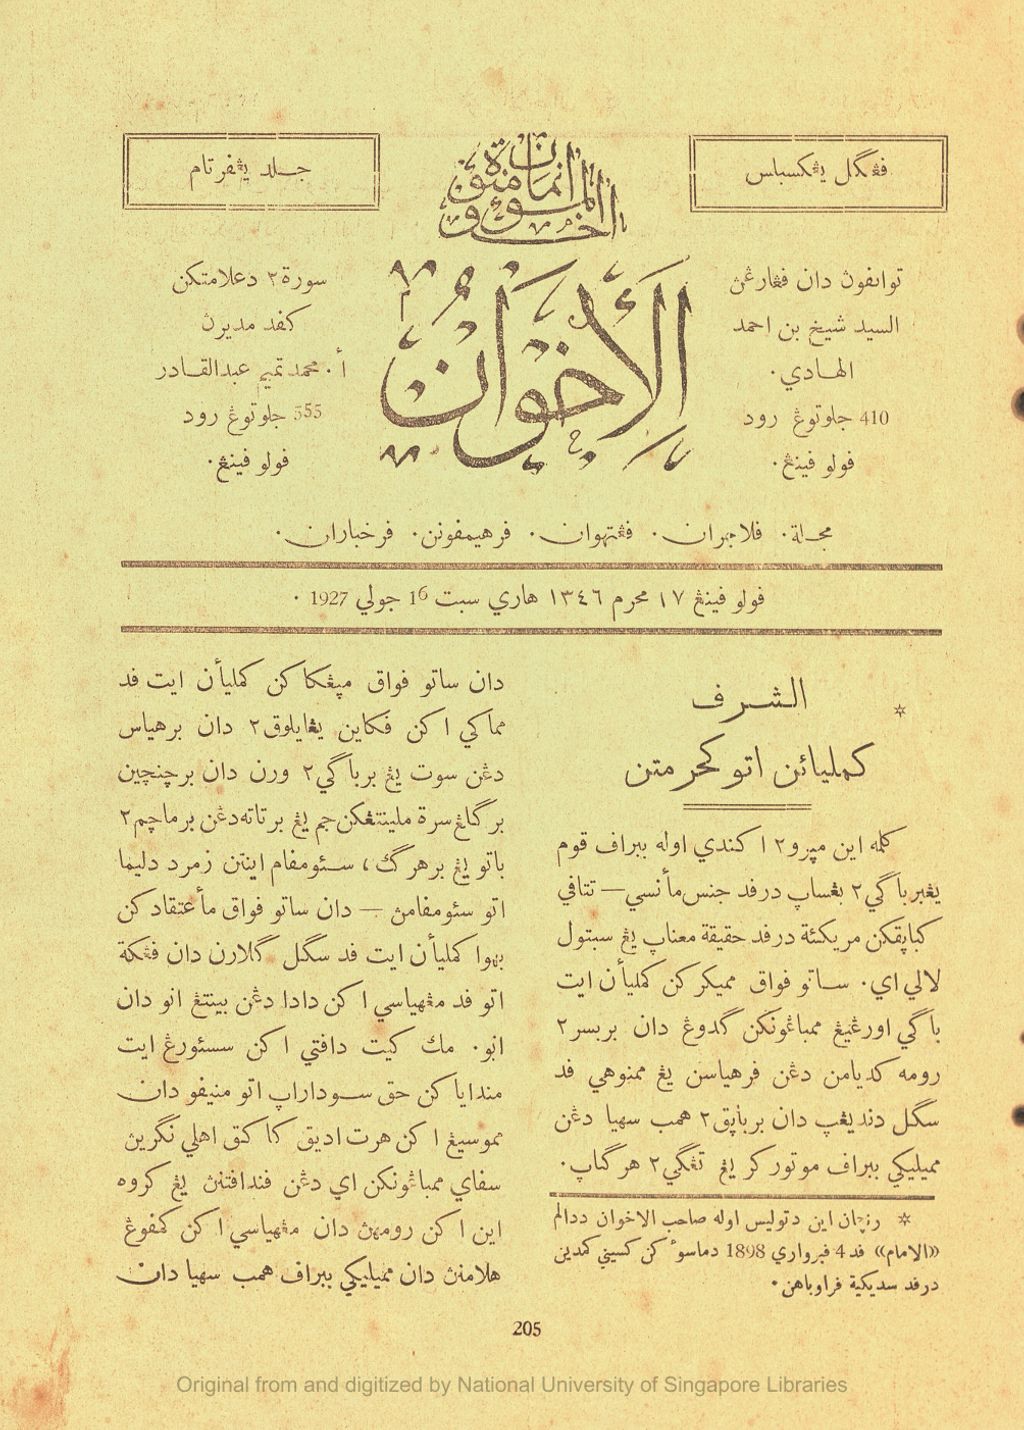 ڤڠݢل يڠكسبلس
جلد يڠڤرتام
إنما المؤمنون إخوة
الإخوان
توانڤون دان ڤڠارڠن
السيد شيخ بن احمد
الهادي.
410 جلوتوڠ رود
ڤولو ڤينڠ.
سورة٢ دعلامتكن
كڤد مديرن
أ. محمد تميم عبدالقادر
555 جلوتوڠ رود
ڤولو ڤينڠ.
مجلة. ڤلاجران. ڤڠتهوان. ڤرهيمڤونن. ڤرخباران.
ڤولو ڤينڠ ١٧ محرم ١٣٤٦ هاري سبت 16 جولي 1927 .
* الشرف
كمليائن اتو كحرمتن
كلمه اين مڽرو٢ اكندي اوله ببراڤ قوم
يڠبرباݢي٢ بڠساڽ درڤد جنس مأنسي— تتاڤي
كباڽقكن مريكئة درڤد حقيقة معناڽ يڠ سبتول
لالي اي. ساتو ڤواق مميكركن كمليأن ايت
باݢي اورڠيڠ ممباڠونكن ݢدوڠ دان بربسر٢
رومه كديامن دڠن ڤرهياسن يڠ ممنوهي ڤد
سݢل دنديڠڽ دان برباڽق٢ همب سهيا دڠن
مميليكي ببراڤ موتوركر يڠ تڠݢي٢ هرݢاڽ.
* رنچان اين دتوليس اوله صاحب الاخوان ددالم
«الامام» ڤد 4 ڤبرواري 1898 دماسوٴكن كسيني كمدين
درڤد سديكية ڤراوباهن.
دان ساتو ڤواق مڽڠكاكن كمليأن ايت ڤد
مماكي اكن ڤكاين يڠايلوق٢ دان برهياس
دڠن سوت يڠ برباݢي٢ ورن دان برچنچين
برݢلڠ سرة ملينتڠكن جم يڠ برتاته دڠن برماچم٢
باتو يڠ برهرݢ، سئومڤام اينتن زمرد دليما
اتو سئومڤامڽ — دان ساتو ڤواق مأعتقادكن
بهوا كمليأن ايت ڤد سݢل ݢلارن دان ڤڠكة
اتو ڤد مڠهياسي اكن دادا دڠن بينتڠ انو دان
انو. مك كيت داڤتي اكن سسئورڠ ايت
مندايا كن حق سوداراڽ اتو منيڤو دان
مموسيڠ اكن هرت اديق كاكق اهلي نݢرين
سڤاي ممباڠونكن اي دڠن ڤنداڤتنن يڠ كروه
اين اكن رومهن دان مڠهياسي اكن كمڤوڠ
هلامنن دان مميليكي ببراڤ همب سهيا دان
205
Original from and digitized by National University of Singapore Libraries